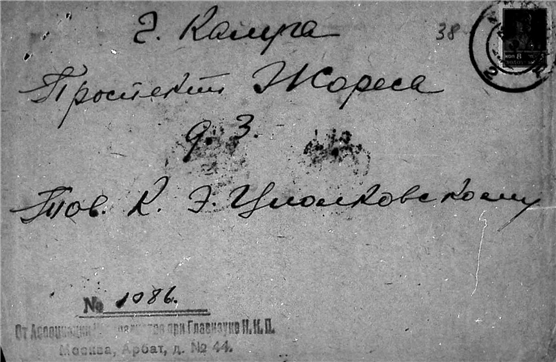 г. Калуга
38
Проспект Жореса
д. 3.
Тов. К. Э. Циолковскому
№ 1086.
От Ассоциации при Главнауке Н.К.П.
Москва, Арбат, д. № 44.